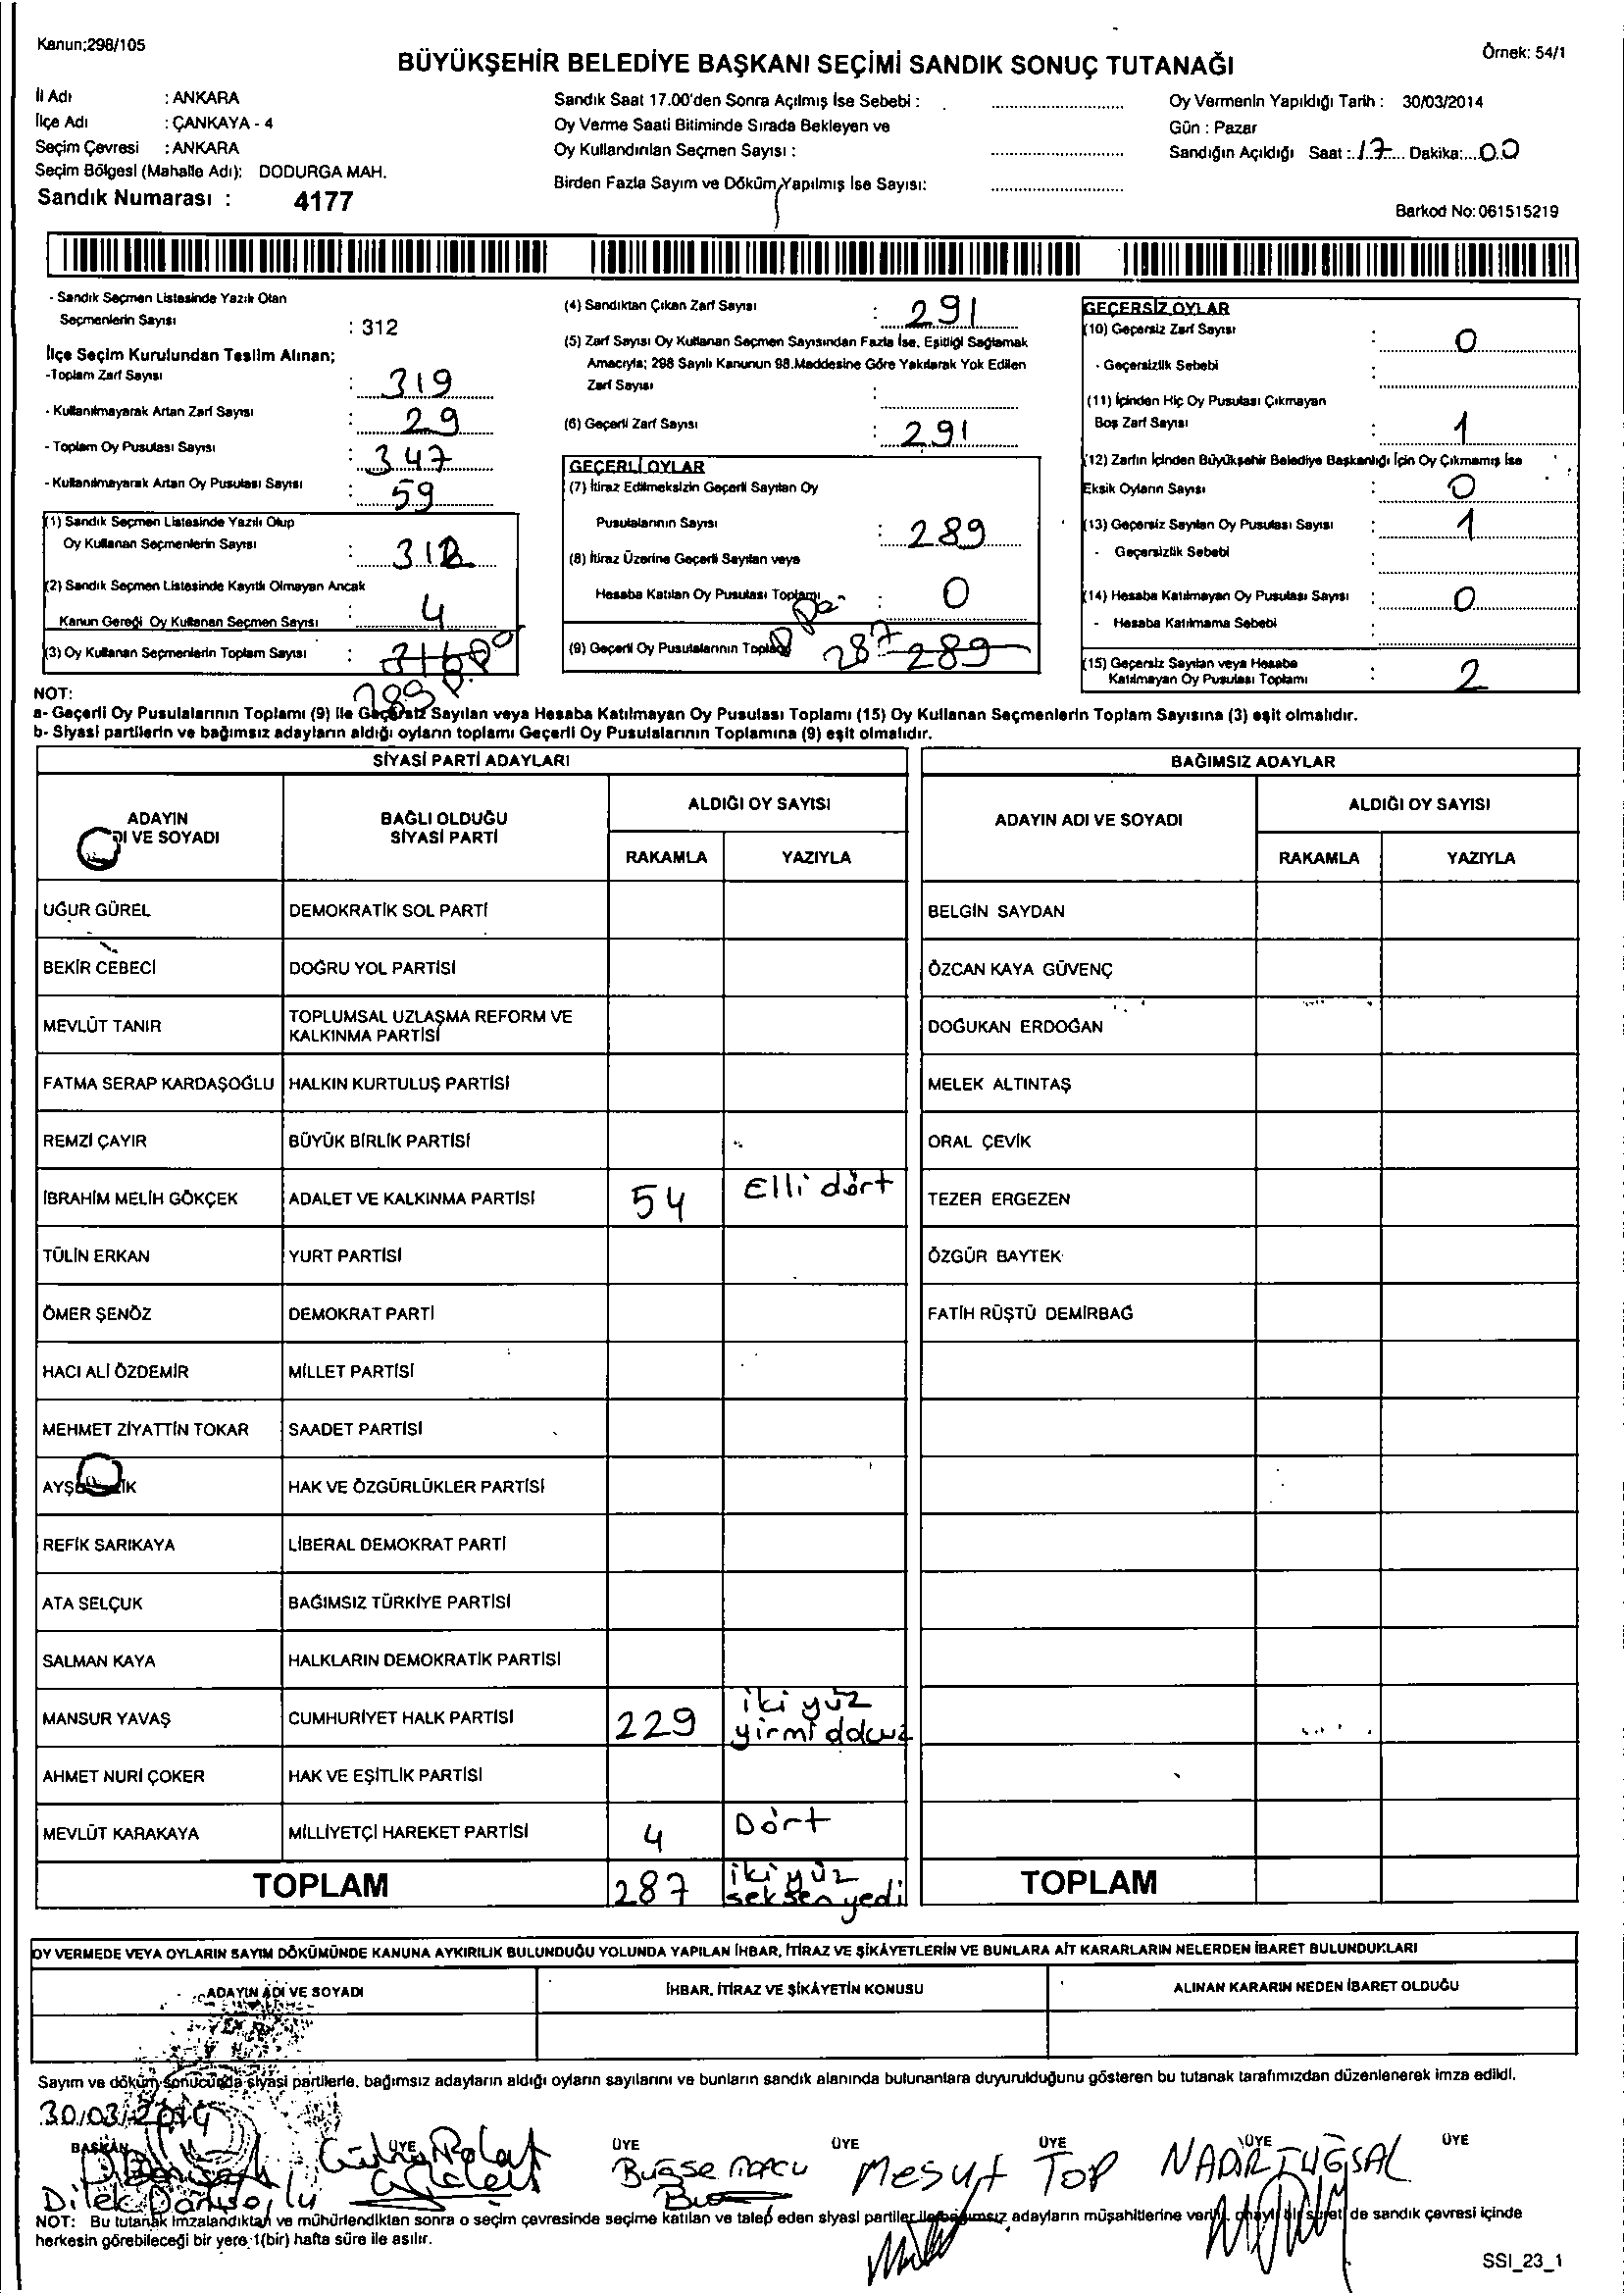 Kanun:298/105
Örnek: 54/1
BÜYÜKŞEHİR BELEDİYE BAŞKANI SEÇİMİ SANDIK SONUÇ TUTANAĞI
İl Adı : ANKARA
İlçe Adı : ÇANKAYA - 4
Seçim Çevresi : ANKARA
Seçim Bölgesi (Mahalle Adı): DODURGA MAH.
Sandık Numarası : 4177
Sandık Saat 17.00'den Sonra Açılmış İse Sebebi :
Oy Verme Saati Bitiminde Sırada Bekleyen ve
Oy Kullandırılan Seçmen Sayısı :
Birden Fazla Sayım ve Döküm Yapılmış İse Sayısı:
Oy Vermenin Yapıldığı Tarih : 30/03/2014
Gün : Pazar
Sandığın Açıldığı Saat : 17 Dakika: 00
Barkod No: 061515219
- Sandık Seçmen Listesinde Yazılı Olan
Seçmenlerin Sayısı : 312
İlçe Seçim Kurulundan Teslim Alınan;
-Toplam Zarf Sayısı : 319
- Kullanılmayarak Artan Zarf Sayısı : 29
- Toplam Oy Pusulası Sayısı : 347
- Kullanılmayarak Artan Oy Pusulası Sayısı : 59
(1) Sandık Seçmen Listesinde Yazılı Olup
Oy Kullanan Seçmenlerin Sayısı : 312
(2) Sandık Seçmen Listesinde Kayıtlı Olmayan Ancak
Kanun Gereği Oy Kullanan Seçmen Sayısı : 4
(3) Oy Kullanan Seçmenlerin Toplam Sayısı : 316
289
(4) Sandıktan Çıkan Zarf Sayısı : 291
(5) Zarf Sayısı Oy Kullanan Seçmen Sayısından Fazla İse, Eşitliği Sağlamak
Amacıyla; 298 Sayılı Kanunun 98.Maddesine Göre Yakılarak Yok Edilen
Zarf Sayısı :
(6) Geçerli Zarf Sayısı : 291
GEÇERLİ OYLAR
(7) İtiraz Edilmeksizin Geçerli Sayılan Oy
Pusulalarının Sayısı : 289
(8) İtiraz Üzerine Geçerli Sayılan veya
Hesaba Katılan Oy Pusulası Toplamı : 0
(9) Geçerli Oy Pusulalarının Toplamı 287 289
GEÇERSİZ OYLAR
(10) Geçersiz Zarf Sayısı : 0
- Geçersizlik Sebebi :
(11) İçinden Hiç Oy Pusulası Çıkmayan
Boş Zarf Sayısı : 1
(12) Zarfın İçinden Büyükşehir Belediye Başkanlığı İçin Oy Çıkmamış İse
Eksik Oyların Sayısı : 0
(13) Geçersiz Sayılan Oy Pusulası Sayısı : 1
- Geçersizlik Sebebi
(14) Hesaba Katılmayan Oy Pusulası Sayısı : 0
- Hesaba Katılmama Sebebi :
(15) Geçersiz Sayılan veya Hesaba
Katılmayan Oy Pusulası Toplamı : 2
NOT:
a- Geçerli Oy Pusulalarının Toplamı (9) ile Geçersiz Sayılan veya Hesaba Katılmayan Oy Pusulası Toplamı (15) Oy Kullanan Seçmenlerin Toplam Sayısına (3) eşit olmalıdır.
b- Siyasi partilerin ve bağımsız adayların aldığı oyların toplamı Geçerli Oy Pusulalarının Toplamına (9) eşit olmalıdır.
SİYASİ PARTİ ADAYLARI
ADAYIN
DI VE SOYADI
BAĞLI OLDUĞU
SİYASİ PARTİ
ALDIĞI OY SAYISI
RAKAMLA YAZIYLA
UĞUR GÜREL DEMOKRATİK SOL PARTİ
BEKİR CEBECİ DOĞRU YOL PARTİSİ
MEVLÜT TANIR TOPLUMSAL UZLAŞMA REFORM VE
KALKINMA PARTİSİ
FATMA SERAP KARDAŞOĞLU HALKIN KURTULUŞ PARTİSİ
REMZİ ÇAYIR BÜYÜK BİRLİK PARTİSİ
İBRAHİM MELİH GÖKÇEK ADALET VE KALKINMA PARTİSİ 54 Elli dört
TÜLİN ERKAN YURT PARTİSİ
ÖMER ŞENÖZ DEMOKRAT PARTİ
HACI ALİ ÖZDEMİR MİLLET PARTİSİ
MEHMET ZİYATTİN TOKAR SAADET PARTİSİ
HAK VE ÖZGÜRLÜKLER PARTİSİ
REFİK SARIKAYA LİBERAL DEMOKRAT PARTİ
ATA SELÇUK BAĞIMSIZ TÜRKİYE PARTİSİ
SALMAN KAYA HALKLARIN DEMOKRATİK PARTİSİ
MANSUR YAVAŞ CUMHURİYET HALK PARTİSİ 229 iki yüz
yirmi dokuz
AHMET NURİ ÇOKER HAK VE EŞİTLİK PARTİSİ
MEVLÜT KARAKAYA MİLLİYETÇİ HAREKET PARTİSİ 4 Dört
TOPLAM 287 iki yüz
seksen yedi
BAĞIMSIZ ADAYLAR
ADAYIN ADI VE SOYADI
ALDIĞI OY SAYISI
RAKAMLA YAZIYLA
BELGİN SAYDAN
ÖZCAN KAYA GÜVENÇ
DOĞUKAN ERDOĞAN
MELEK ALTINTAŞ
ORAL ÇEVİK
TEZER ERGEZEN
ÖZGÜR BAYTEK
FATİH RÜŞTÜ DEMİRBAĞ
TOPLAM
OY VERMEDE VEYA OYLARIN SAYIM DÖKÜMÜNDE KANUNA AYKIRILIK BULUNDUĞU YOLUNDA YAPILAN İHBAR, İTİRAZ VE ŞİKÂYETLERİN VE BUNLARA AİT KARARLARIN NELERDEN İBARET BULUNDUKLARI
ADAYIN ADI VE SOYADI
İHBAR, İTİRAZ VE ŞİKÂYETİN KONUSU
ALINAN KARARIN NEDEN İBARET OLDUĞU
Sayım ve döküm sonucunda siyasi partilerle, bağımsız adayların aldığı oyların sayılarını ve bunların sandık alanında bulunanlara duyurulduğunu gösteren bu tutanak tarafımızdan düzenlenerek imza edildi.
30/03/2014
BAŞKAN ÜYE ÜYE ÜYE ÜYE ÜYE ÜYE
Polat
Buğse
Mesut TOP
NADİR TUĞSAL
Dilek
NOT: Bu tutanak imzalandıktan ve mühürlendikten sonra o seçim çevresinde seçime katılan ve talep eden siyasi partiler ile bağımsız adayların müşahitlerine verilir, onaylı bir sureti de sandık çevresi içinde
herkesin görebileceği bir yere 1(bir) hafta süre ile asılır.
SSI_23_1